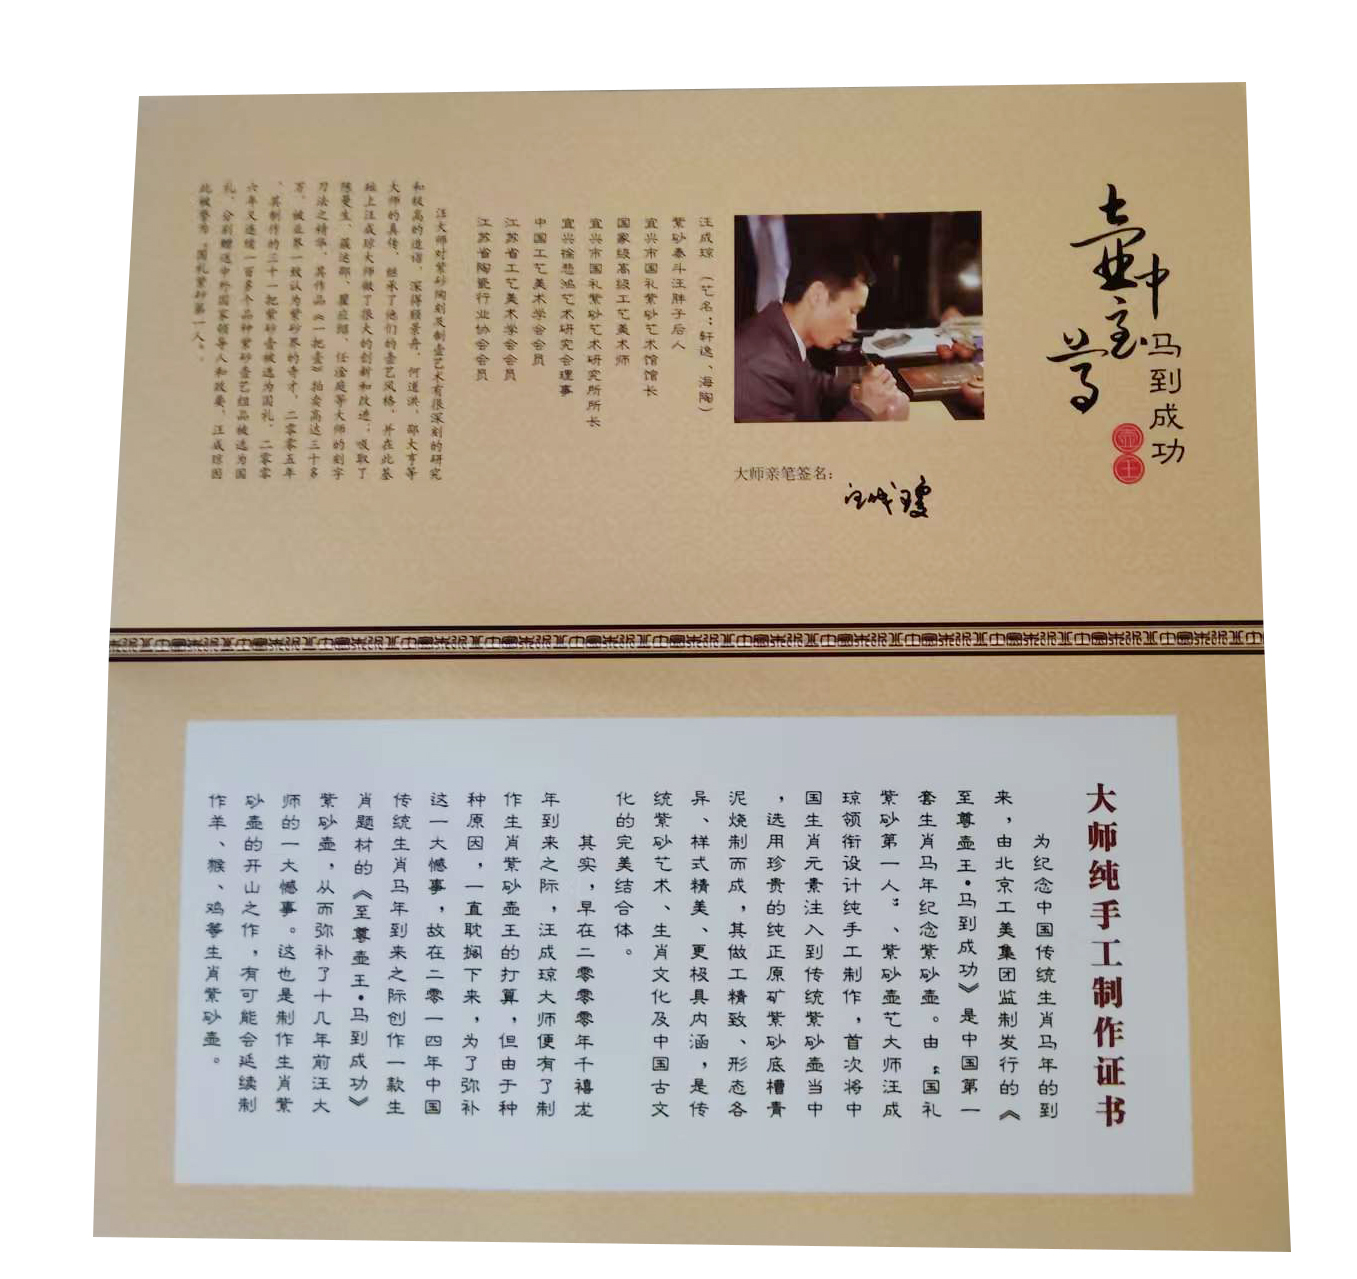 壶中至尊
马到成功
壶王
大师亲笔签名：
汪成琼
汪成琼（艺名：轩逸、海陶）
紫砂泰斗汪胖子后人
宜兴市国礼紫砂艺术馆馆长
国家级高级工艺美术师
宜兴市国礼紫砂艺术研究所所长
宜兴徐悲鸿艺术研究会理事
中国工艺美术学会会员
江苏省工艺美术学会会员
江苏省陶瓷行业协会会员
汪大师对紫砂陶刻及制壶艺术有很深刻的研究
和极高的造诣，深得顾景舟、何道洪、邵大亨等
大师的真传，继承了他们的壶艺风格，并在此基
础上汪成琼大师做了很大的创新和改进；吸取了
陈曼生、聂达邵、瞿应绍、任淦庭等大师的刻字
刀法之精华，其作品《一把壶》拍卖高达三十多
万，被业界一致认为紫砂界的奇才，二零零五年
、其制作的三十一把紫砂壶被选为国礼，二零零
六年又连续一百多个品种紫砂壶艺组品被选为国
礼，分别赠送中外国家领导人和政要，汪成琼因
此被誉为“国礼紫砂第一人”。
大师纯手工制作证书
为纪念中国传统生肖马年的到
来，由北京工美集团监制发行的《
至尊壶王·马到成功》是中国第一
套生肖马年纪念紫砂壶。由“国礼
紫砂第一人”、紫砂壶艺大师汪成
琼领衔设计纯手工制作，首次将中
国生肖元素注入到传统紫砂壶当中
，选用珍贵的纯正原矿紫砂底槽青
泥烧制而成，其做工精致、形态各
异、样式精美、更极具内涵，是传
统紫砂艺术、生肖文化及中国古文
化的完美结合体。
其实，早在二零零零年千禧龙
年到来之际，汪成琼大师便有了制
作生肖紫砂壶王的打算，但由于种
种原因，一直耽搁下来，为了弥补
这一大憾事，故在二零一四年中国
传统生肖马年到来之际创作一款生
肖题材的《至尊壶王·马到成功》
紫砂壶，从而弥补了十几年前汪大
师的一大憾事。这也是制作生肖紫
砂壶的开山之作，有可能会延续制
作羊、猴、鸡等生肖紫砂壶。